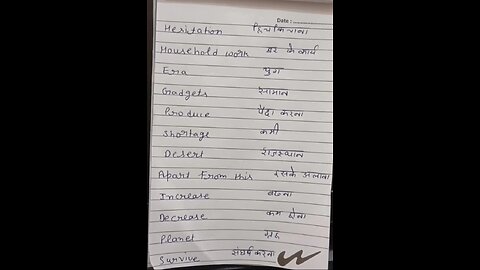 Date :
Heritation हिचकिचाना
Household work घर के कार्य
Era युग
Gadgets सामान
Produce पैदा करना
Shortage कमी
Desert राजस्थान
Apart From this इसके अलावा
Increase बढना
Decrease कम होना
Planet ग्रह
Survive संघर्ष करना